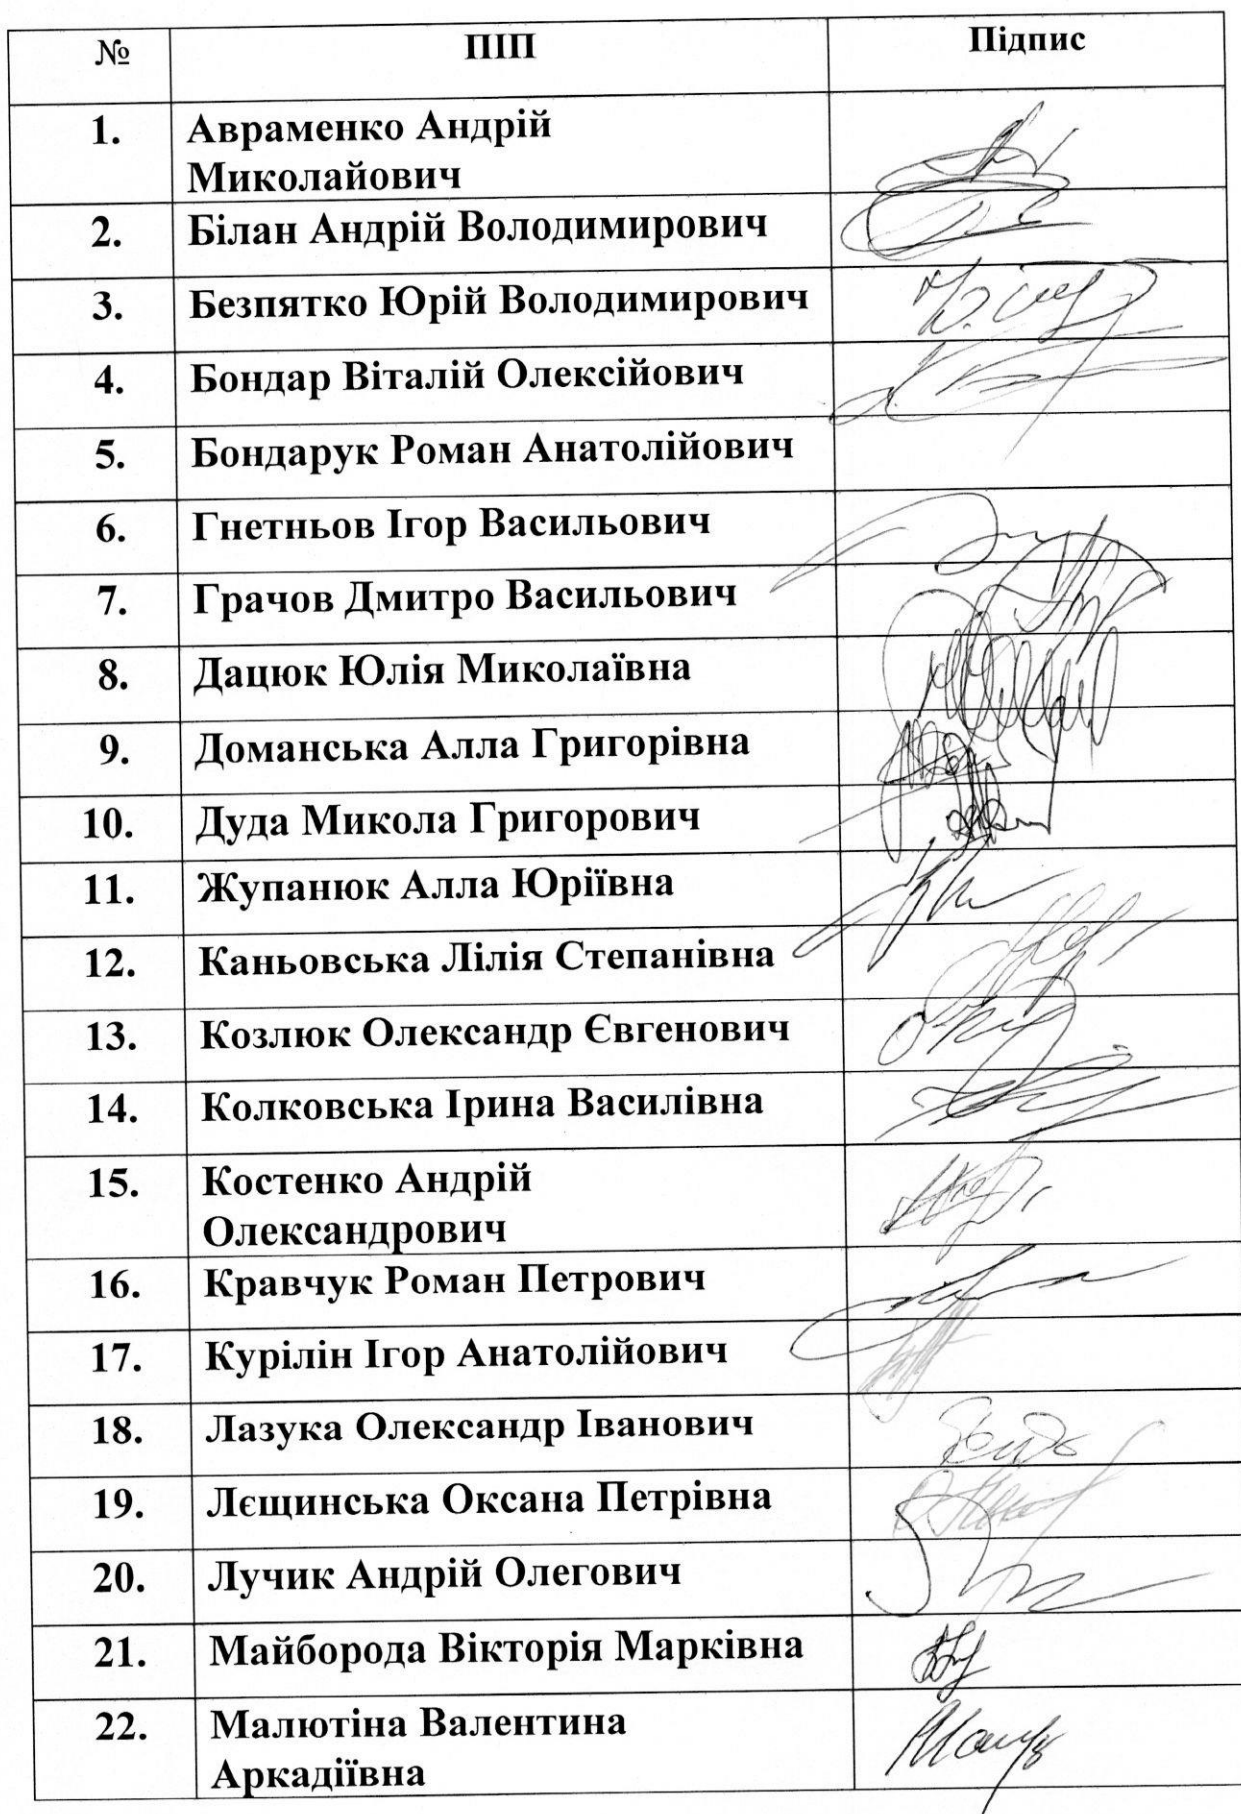 № ПІП Підпис
1. Авраменко Андрій
Миколайович
2. Білан Андрій Володимирович
3. Безпятко Юрій Володимирович
4. Бондар Віталій Олексійович
5. Бондарук Роман Анатолійович
6. Гнетньов Ігор Васильович
7. Грачов Дмитро Васильович
8. Дацюк Юлія Миколаївна
9. Доманська Алла Григорівна
10. Дуда Микола Григорович
11. Жупанюк Алла Юріївна
12. Каньовська Лілія Степанівна
13. Козлюк Олександр Євгенович
14. Колковська Ірина Василівна
15. Костенко Андрій
Олександрович
16. Кравчук Роман Петрович
17. Курілін Ігор Анатолійович
18. Лазука Олександр Іванович
19. Лєщинська Оксана Петрівна
20. Лучик Андрій Олегович
21. Майборода Вікторія Марківна
22. Малютіна Валентина
Аркадіївна